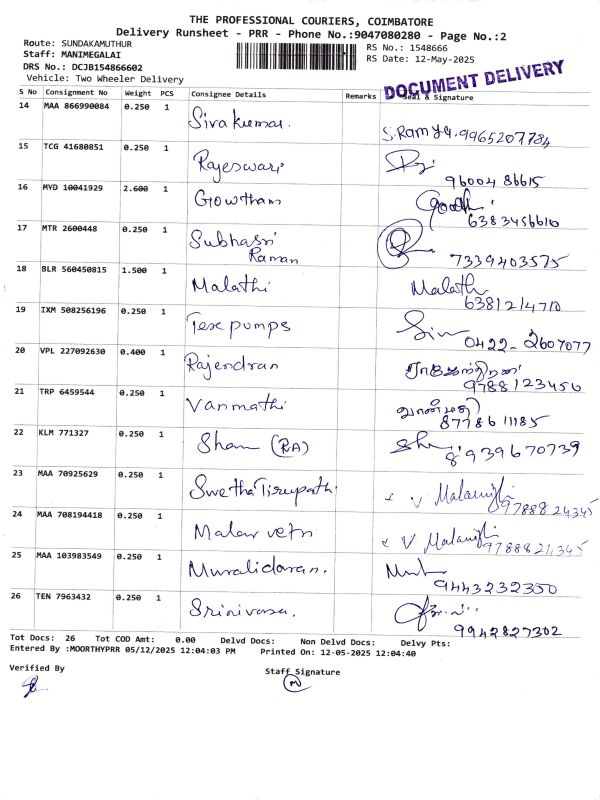 THE PROFESSIONAL COURIERS, COIMBATORE
Delivery Runsheet - PRR - Phone No.:9047080280 - Page No.:2
Route: SUNDAKAMUTHUR
Staff: MANIMEGALAI
DRS No.: DCJB154866602
Vehicle: Two Wheeler Delivery
RS No.: 1548666
RS Date: 12-May-2025
DOCUMENT DELIVERY
S No Consignment No Weight PCS Consignee Details Remarks Seal & Signature
14 MAA 866990084 0.250 1 Sivakumar. S.Ramya.9965207784
15 TCG 41680851 0.250 1 Rajeswari
9600486615
16 MYD 10041929 2.600 1 Gowtham Gowth
6383456610
17 MTR 2600448 0.250 1 Subhasri
Raman 7339403575
18 BLR 560450815 1.500 1 Malathi Malathi
6381214710
19 IXM 508256196 0.250 1 Texpumps
0422-2607077
20 VPL 227092630 0.400 1 Rajendran ராஜேந்திரன்
9788123456
21 TRP 6459544 0.250 1 Vanmathi வான்மதி
8778611185
22 KLM 771327 0.250 1 Sham (RA)
8939670739
23 MAA 70925629 0.250 1 Swetha Tirupathi
24 MAA 708194418 0.250 1 Malar vetri
25 MAA 103983549 0.250 1 Muralidaran.
9443232350
26 TEN 7963432 0.250 1 Srinivasa.
9942827302
Tot Docs: 26 Tot COD Amt: 0.00 Delvd Docs: Non Delvd Docs: Delvy Pts:
Entered By :MOORTHYPRR 05/12/2025 12:04:03 PM Printed On: 12-05-2025 12:04:40
Verified By Staff Signature